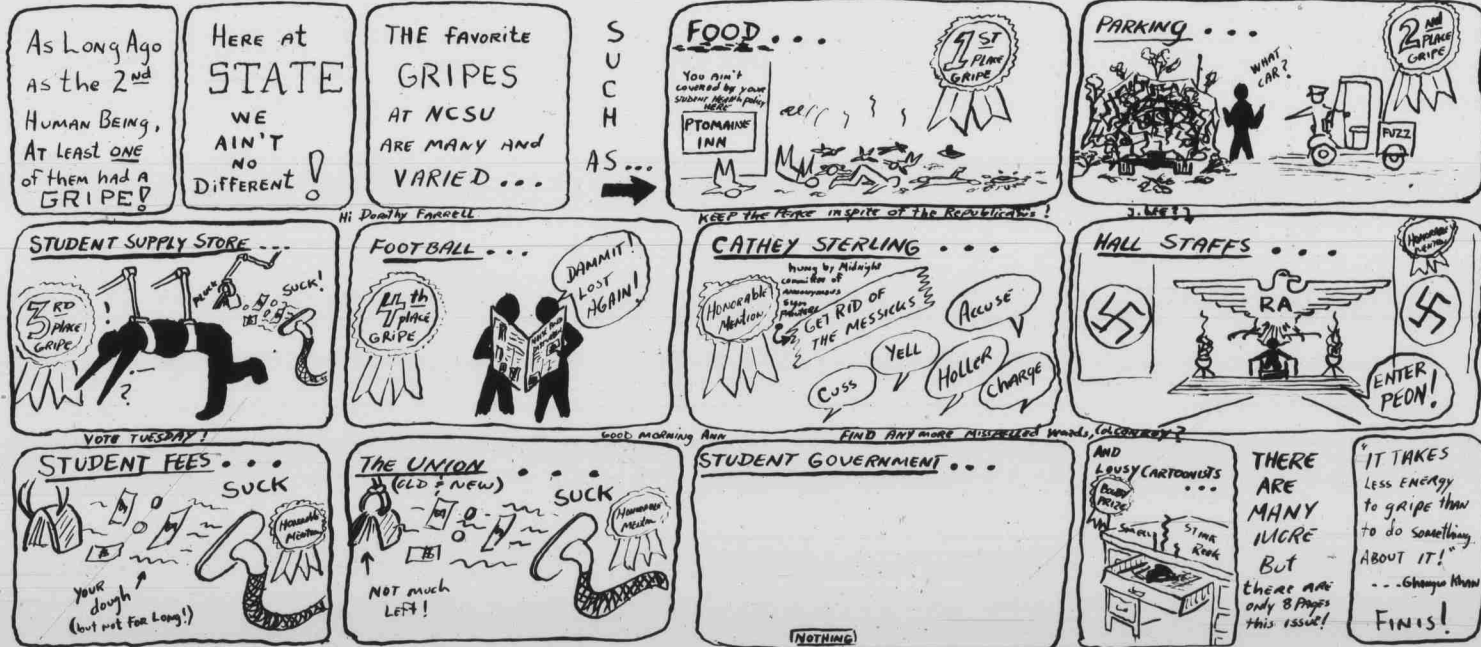 As Long Ago
As the 2nd
Human Being,
At Least ONE
of them had a
GRIPE!
HERE AT
STATE
WE
AIN'T
NO
Different!
THE favorite
GRIPES
AT NCSU
ARE MANY AND
VARIED...
SUCH
AS...
FOOD...
1ST
PLACE
GRIPE
You Ain't
covered by your
student Health policy
HERE
PTOMAINE
INN
PARKING...
2nd
PLACE
GRIPE
WHAT
CAR?
FUZZ
Hi Dorothy FARRELL
KEEP the PEACE inspite of the Republicans!
STUDENT SUPPLY STORE...
3RD
PLACE
GRIPE
!
?
PLUCK
SUCK!
FOOTBALL...
4th
PLACE
GRIPE
DAMMIT!
LOST
AGAIN!
CATHEY STERLING...
HONORABLE
MENTION
hung by Midnight
committee of
anonymous
GET RID OF
THE MESSICKS
ACCUSE
YELL
CUSS
HOLLER
CHARGE
HALL STAFFS...
HONORABLE
MENTION
RA
ENTER
PEON!
VOTE TUESDAY!
GOOD MORNING ANN
FIND ANY MORE MISSPELLED words,
STUDENT FEES...
SUCK
HONORABLE
MENTION
YOUR
dough
(but not FOR Long!)
The UNION...
(OLD & NEW)
SUCK
HONORABLE
MENTION
NOT much
LEFT!
STUDENT GOVERNMENT...
NOTHING
AND
LOUSY CARTOONISTS
...
BOOBY
PRIZE
SMELL
STINK
REEK
THERE
ARE
MANY
MORE
But
there ARE
only 8 PAGES
this issue!
"IT TAKES
LESS ENERGY
to gripe than
to do something
ABOUT IT!"
...Ghengus Khan
FINIS!